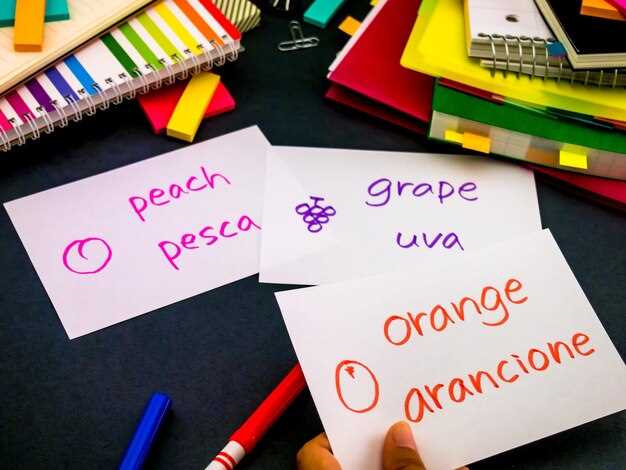 peach
pesca
grape
uva
orange
arancione